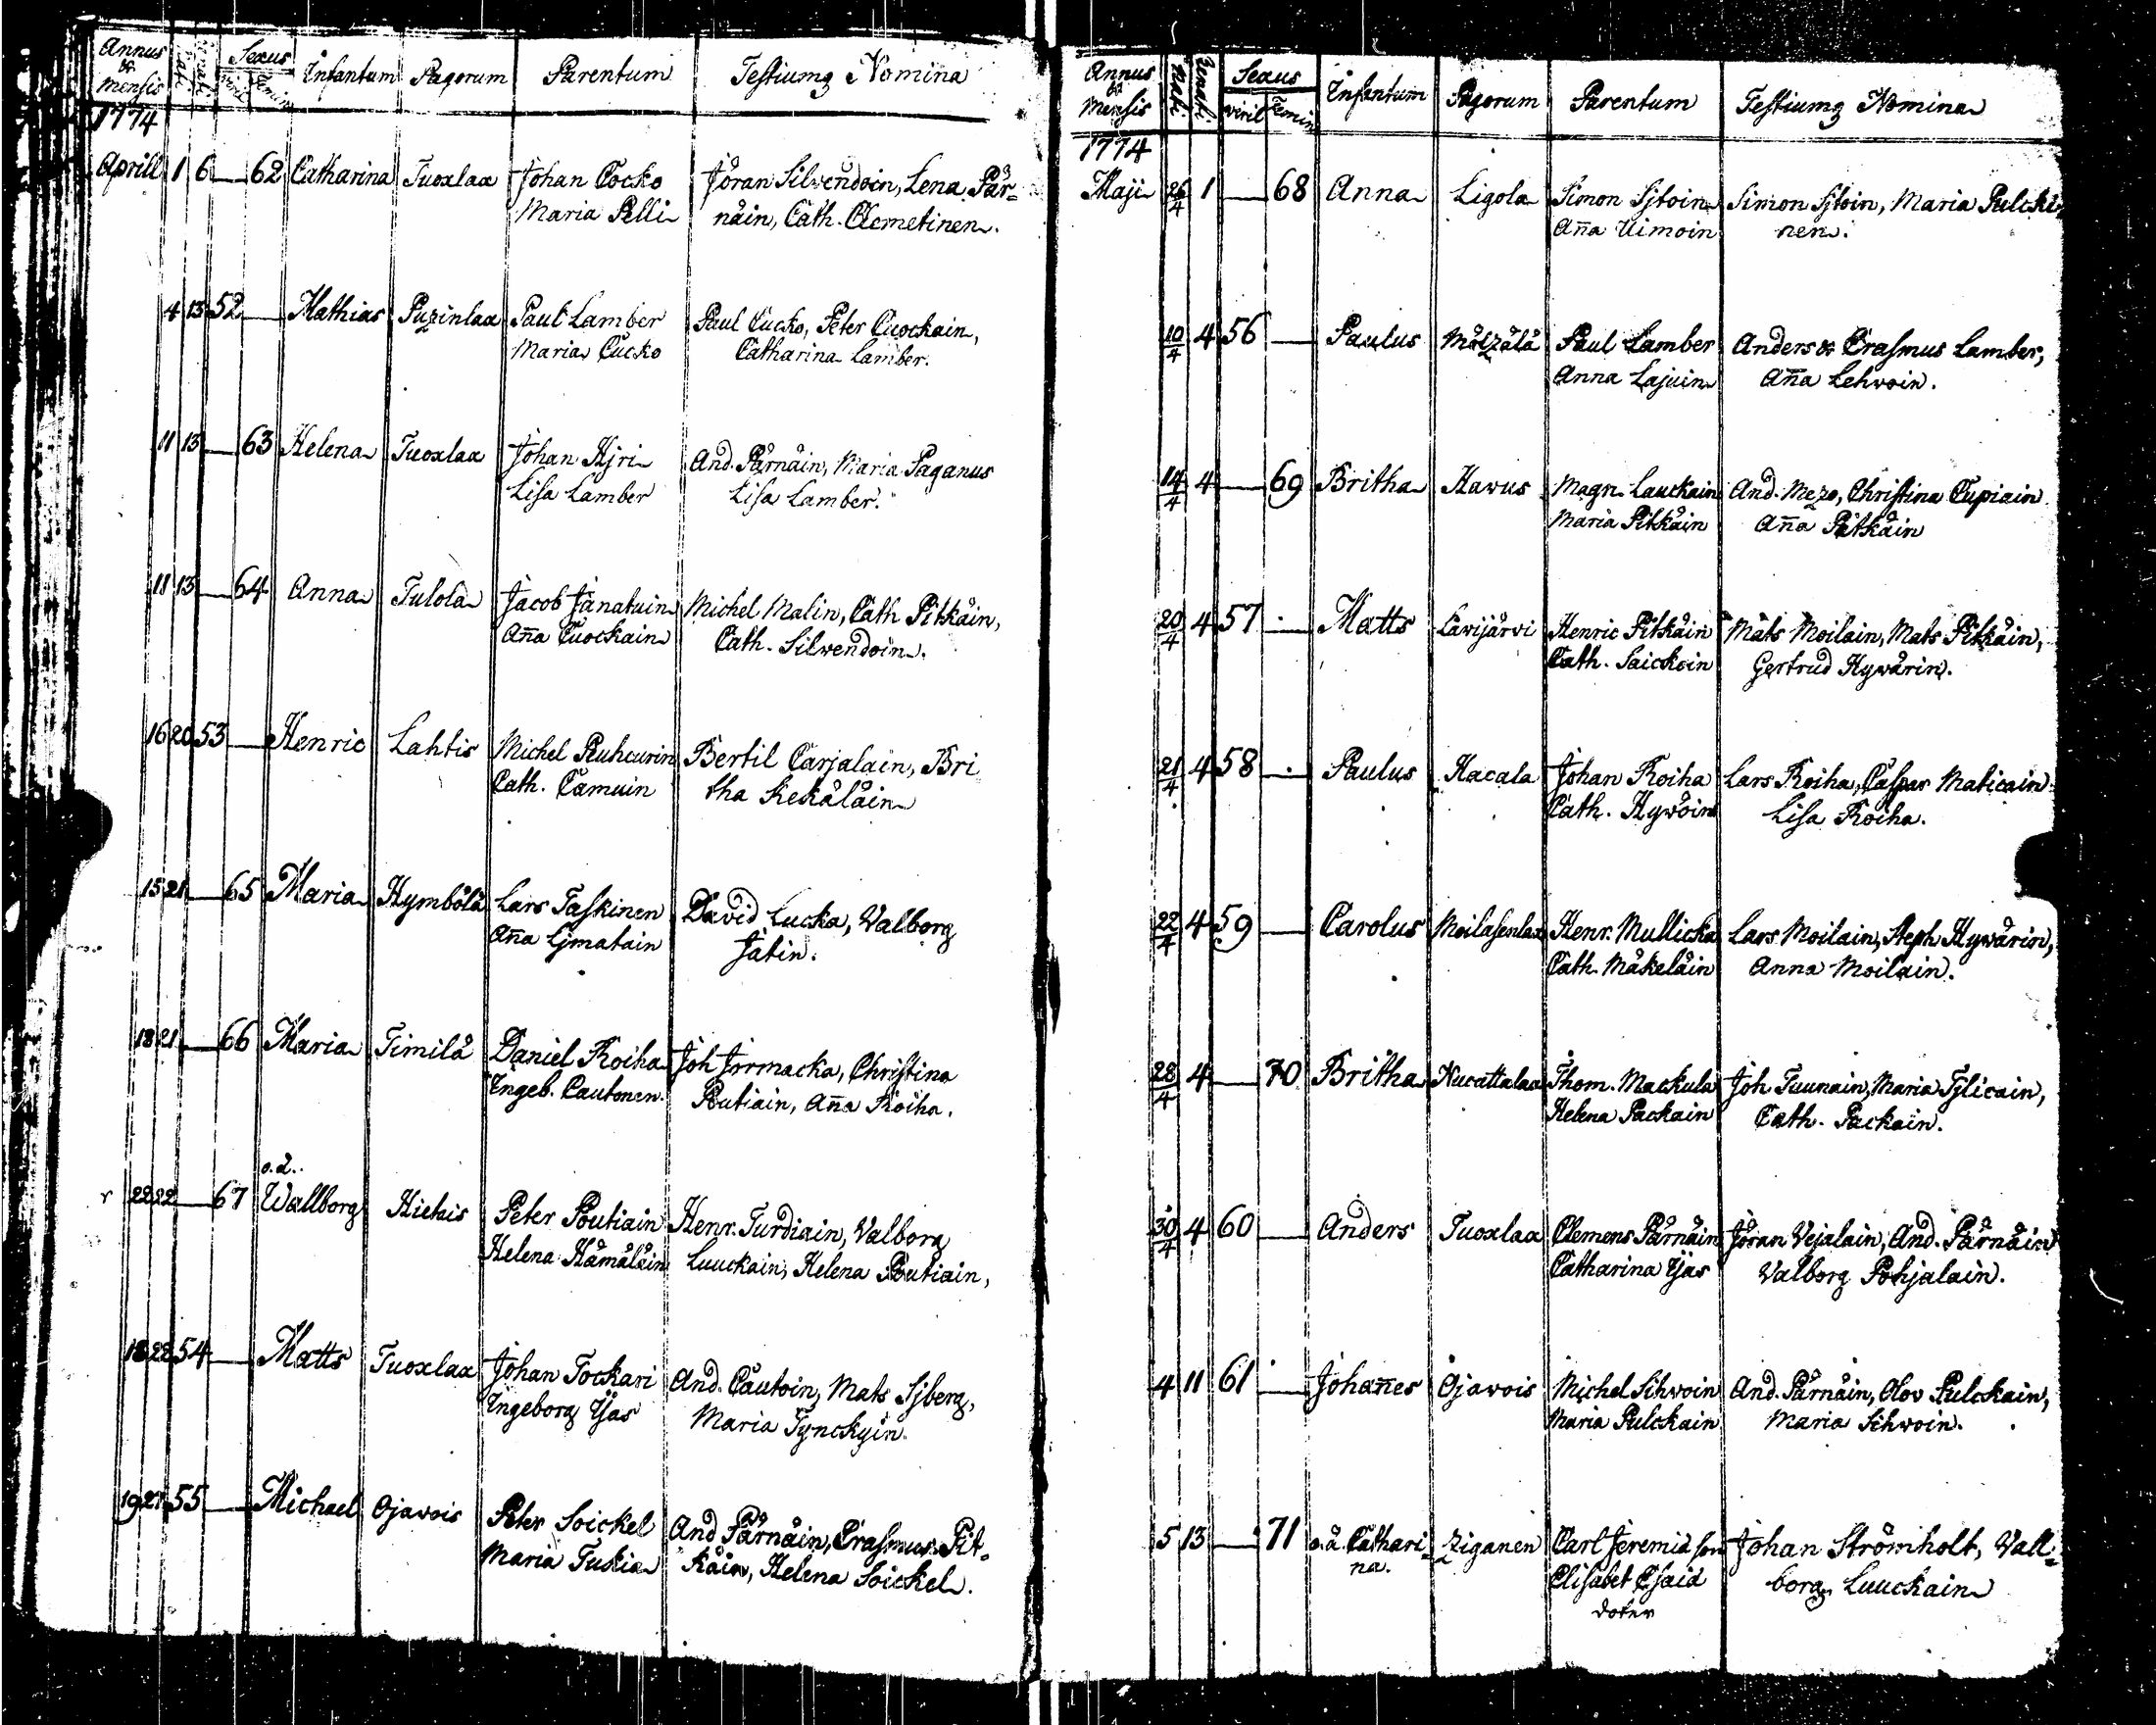 Annus & Mensis Nati Renati Sexus viril Femin Infantum Pagorum Parentum Testiumq Nomina
1774
Aprill 1 6 — 62 Catharina Tuoxlax Johan Cocko Jöran Silvendoin, Lena Pär=
Maria Pelli näin, Cath. Clemetinen.
4 13 52 — Mathias Puzinlax Paul Lamber Paul Cucko, Peter Cuockain,
Maria Cucko Catharina Lamber.
11 13 — 63 Helena Tuoxlax Johan Hjri And. Pärnäin, Maria Paganus
Lisa Lamber Lisa Lamber.
11 13 — 64 Anna Tulola Jacob Jänatuin Michel Malin, Cath Pitkäin,
Aña Cuockain Cath. Silvendoin.
16 20 53 — Henric Lahtis Michel Ruhcurin Bertil Carjalain, Bri
Cath. Camuin tha Kekäläin
15 21 — 65 Maria Hymbölä Lars Taskinen David Lucka, Valborg
Aña Ljmatain Jätin.
18 21 — 66 Maria Timilä Daniel Roiha Joh Jormacka, Christina
Ingeb. Cautonen. Poutiain, Aña Roiha.
o.ä.
22 22 — 67 Wallborg Hietais Peter Poutiain Henr. Turdiain, Valborg
Helena Hämäläin Luuckain, Helena Poutiain,
18 22 54 — Matts Tuoxlax Johan Tockari And. Cautoin, Mats Sjberg,
Ingeborg Yjas Maria Tynckyin.
19 27 55 — Michael Ojavois Peter Soickel And Pärnäin, Erasmus Pit=
Maria Tukia käin, Helena Soickel.
Annus & Mensis Nati Renati Sexus viril Femin Infantum Pagorum Parentum Testiumq Nomina
1774
Maji 26/4 1 — 68 Anna Ligola Simon Sjtoin Simon Sjtoin, Maria Pulcki
Aña Uimoin nen.
10/4 4 56 — Paulus Mälzälä Paul Lamber Anders & Erasmus Lamber,
Anna Lajuin Aña Lehvoin.
14/4 4 — 69 Britha Havus Magn. Lauckain And. Mezo, Christina Cupiain
Maria Pitkäin Aña Pitkäin
20/4 4 57 — Matts Lavijärvi Henric Pitkäin Mats Moilain, Mats Pitkäin,
Cath. Saickoin Gertrud Hyvärin.
21/4 4 58 — Paulus Hacala Johan Roiha Lars Roiha, Caspar Maticain
Cath. Hyvöin Lisa Roiha.
22/4 4 59 — Carolus Moilasenlax Henr. Mullicka Lars Moilain, Steph Hyvärin,
Cath. Mäkeläin Anna Moilain.
28/4 4 — 70 Britha Nucattalax Thom. Mackula Joh Tuunain, Maria Tylicain,
Helena Packain Cath. Packain.
30/4 4 60 — Anders Tuoxlax Clemens Pärnäin Jöran Vejalain, And. Pärnäin
Catharina Yjas Valborg Pohjalain.
4 11 61 — Johañes Ojavois Michel Sihvoin And. Pärnäin, Olov Pulckain,
Maria Pulckain Maria Sihvoin.
5 13 — 71 o.ä. Cathari= Ziganen Carl Jeremiæ son Johan Strömholt, Vall=
na. Elisabet Esaiæ borg Luuckain
doter